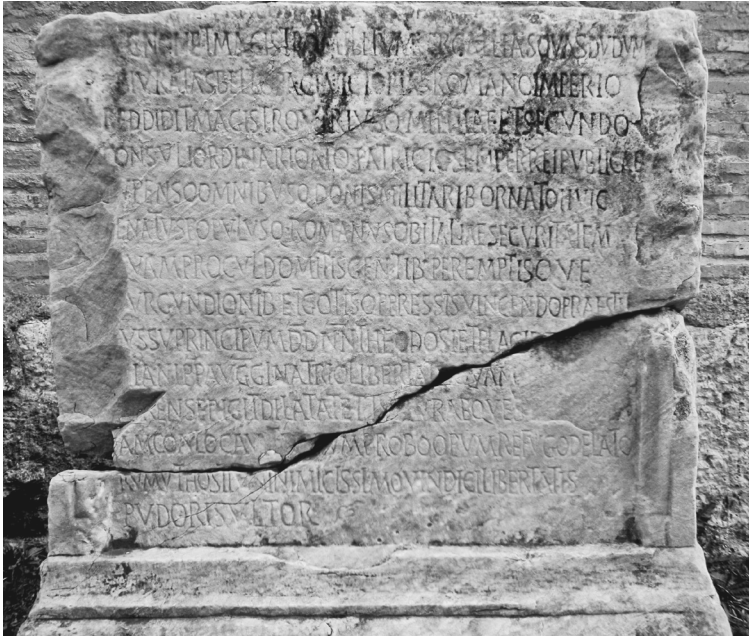 MAGISTRO MILITVM PER GALLIAS QVAS DVDVM
IVRATAS BELLO PACE VICTORIAS ROMANO IMPERIO
REDDIDIT MAGISTRO VTRIVSQ MILITIAE ET SECVNDO
CONSVLI ORDINARIO ATQ PATRICIO SEMPER REI PVBLICAE
PENSO OMNIBVSQ DONIS MILITARIB ORNATO HVIC
ENATVS POPVLVSQ ROMANVS OB ITALIAE SECVRITATEM
VAM PROCVL DOMITIS GENTIB PEREMPTISQVE
VRGVNDIONIB ET GOTIS OPPRESSIS VINCENDO PRAESTIT
VSSV PRINCIPVM DD NN THEODOSI ET PLACIDI
IANI PP AVGG IN ATRIO LIBERTA VAM
ENS ERIGIT DILATAT ET TVETVR AEQVE
AM CONLOCAV M PROBO OPVM REFVGO DELATO
RVM VT HOSTIVM INIMICISSIMO VINDICI LIBERTATIS
PVDORIS VLTOR